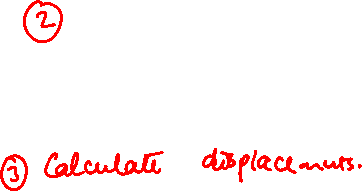 ②
③ Calculate displacements.